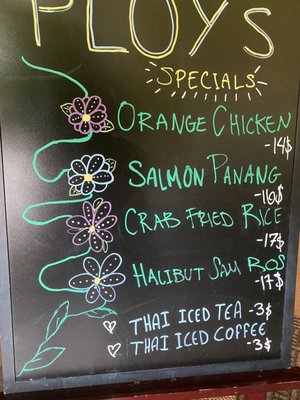 PLOYS
SPECIALS
ORANGE CHICKEN
-14$
SALMON PANANG
-16$
CRAB FRIED RICE
-17$
HALIBUT SAM ROS
-17$
THAI ICED TEA -3$
THAI ICED COFFEE
-3$